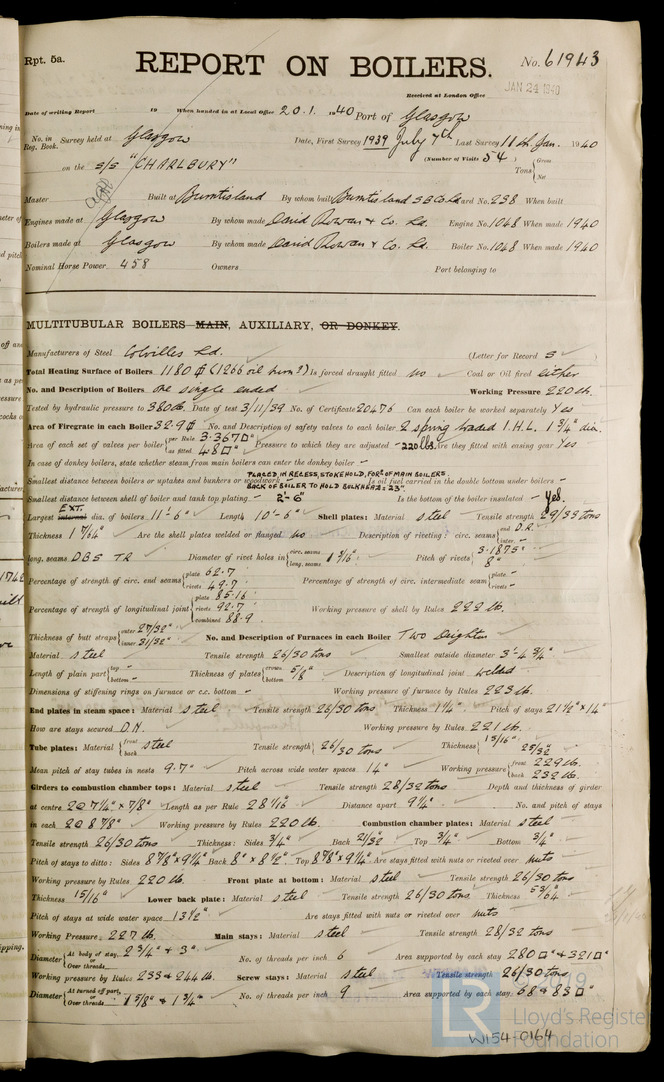 Rpt. 5a.
REPORT ON BOILERS.
No. 61943
JAN 24 1940
Received at London Office
Date of writing Report 19 When handed in at Local Office 20.1. 1940 Port of Glasgow
No. in Reg. Book. Survey held at Glasgow Date, First Survey 1939 July 7th Last Survey 11th Jan. 1940
(Number of Visits 54)
on the S/S "CHARLBURY" Tons { Gross Net
Master Built at Burntisland By whom built Burntisland S.B. Co. Ld. Yard No. 238 When built
Engines made at Glasgow By whom made David Rowan & Co. Ld. Engine No. 1048 When made 1940
Boilers made at Glasgow By whom made David Rowan & Co. Ld. Boiler No. 1048 When made 1940
Nominal Horse Power 458 Owners Port belonging to
MULTITUBULAR BOILERS MAIN, AUXILIARY, OR DONKEY.
Manufacturers of Steel Colvilles Ld. (Letter for Record S)
Total Heating Surface of Boilers 1180 (1266 oil burn?) Is forced draught fitted no Coal or Oil fired either
No. and Description of Boilers one single ended Working Pressure 220 lb.
Tested by hydraulic pressure to 380 lb. Date of test 3/11/39 No. of Certificate 20476 Can each boiler be worked separately Yes
Area of Firegrate in each Boiler 32.9 No. and Description of safety valves to each boiler 2 spring loaded I.H.L. 1 3/4" dia.
Area of each set of valves per boiler { per Rule 3.367 □" as fitted 4.8 □" Pressure to which they are adjusted 220 lbs. Are they fitted with easing gear Yes
In case of donkey boilers, state whether steam from main boilers can enter the donkey boiler -
PLACED IN RECESS, STOKEHOLD, FOR'D OF MAIN BOILERS.
Smallest distance between boilers or uptakes and bunkers or woodwork BACK OF BOILER TO HOLD BULKHEAD = 23". Is oil fuel carried in the double bottom under boilers -
Smallest distance between shell of boiler and tank top plating 2'-6" Is the bottom of the boiler insulated Yes.
Largest internal EXT. dia. of boilers 11'-6" Length 10'-6" Shell plates: Material steel Tensile strength 29/33 tons
Thickness 1 1/64" Are the shell plates welded or flanged no Description of riveting: circ. seams { end D.R. inter. -
long. seams D.B.S. T.R. Diameter of rivet holes in { circ. seams long. seams 1 1/16" Pitch of rivets { 3.1875" 8"
Percentage of strength of circ. end seams { plate 62.7 rivets 49.7 Percentage of strength of circ. intermediate seam { plate - rivets -
Percentage of strength of longitudinal joint { plate 85.16 rivets 92.7 combined 88.9 Working pressure of shell by Rules 222 lb.
Thickness of butt straps { outer 27/32" inner 31/32" No. and Description of Furnaces in each Boiler Two Deighton
Material steel Tensile strength 26/30 tons Smallest outside diameter 3'-4 3/4"
Length of plain part { top - bottom - Thickness of plates { crown bottom 5/8" Description of longitudinal joint welded
Dimensions of stiffening rings on furnace or c.c. bottom - Working pressure of furnace by Rules 223 lb.
End plates in steam space: Material steel Tensile strength 26/30 tons Thickness 1 1/4" Pitch of stays 21 1/2" x 14"
How are stays secured D.N. Working pressure by Rules 221 lb.
Tube plates: Material { front back steel Tensile strength { 26/30 tons Thickness { 15/16" 25/32"
Mean pitch of stay tubes in nests 9.7" Pitch across wide water spaces 14" Working pressure { front 229 lb. back 232 lb.
Girders to combustion chamber tops: Material steel Tensile strength 28/32 tons Depth and thickness of girder
at centre 2 @ 7 1/4" x 7/8" Length as per Rule 28 1/16" Distance apart 9 1/4" No. and pitch of stays
in each 2 @ 8 7/8" Working pressure by Rules 220 lb. Combustion chamber plates: Material steel
Tensile strength 26/30 tons Thickness: Sides 3/4" Back 21/32" Top 3/4" Bottom 3/4"
Pitch of stays to ditto: Sides 8 7/8" x 9 1/4" Back 8" x 8 1/2" Top 8 7/8" x 9 1/4" Are stays fitted with nuts or riveted over nuts
Working pressure by Rules 220 lb. Front plate at bottom: Material steel Tensile strength 26/30 tons
Thickness 15/16" Lower back plate: Material steel Tensile strength 26/30 tons Thickness 53/64"
Pitch of stays at wide water space 13 1/2" Are stays fitted with nuts or riveted over nuts
Working Pressure 227 lb. Main stays: Material steel Tensile strength 28/32 tons
Diameter { At body of stay, or Over threads 2 3/4" & 3" No. of threads per inch 6 Area supported by each stay 280 □" & 321 □"
Working pressure by Rules 233 & 244 lb. Screw stays: Material steel Tensile strength 26/30 tons
Diameter { At turned off part, or Over threads 1 5/8" & 1 3/4" No. of threads per inch 9 Area supported by each stay 68 & 83 □"
LR
Lloyd's Register
Foundation
W154-0164